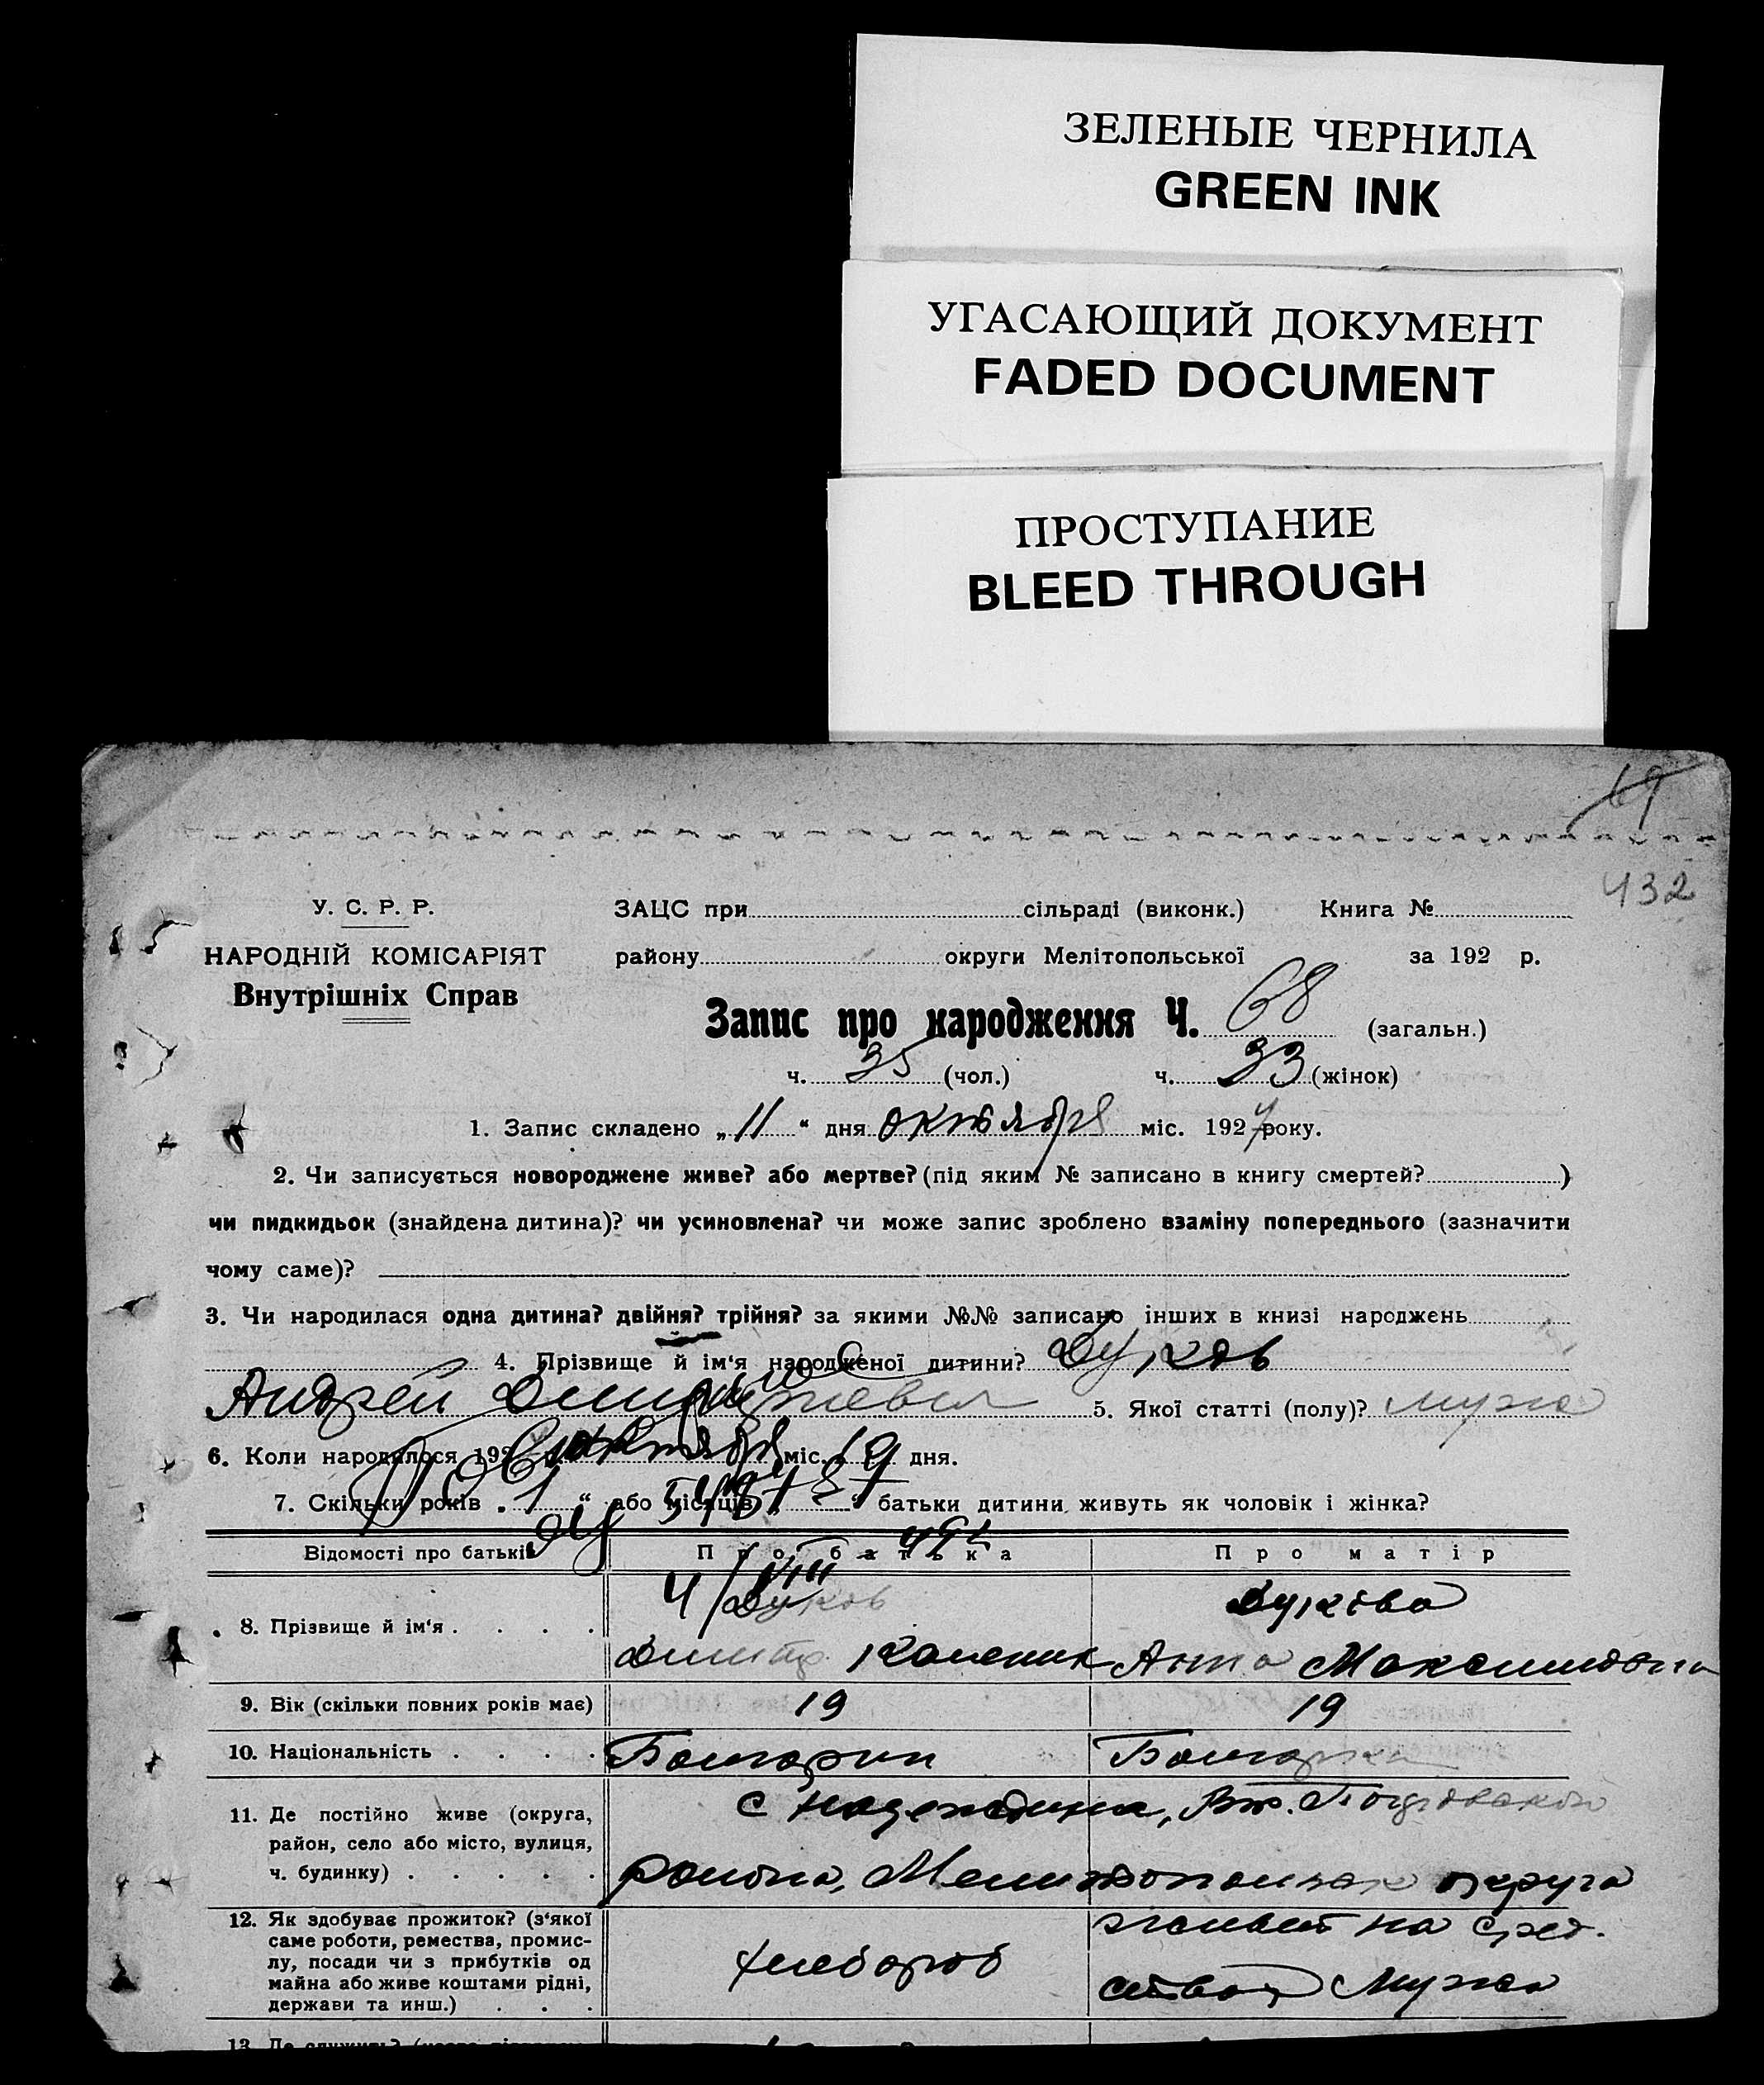 ЗЕЛЕНЫЕ ЧЕРНИЛА
GREEN INK
УГАСАЮЩИЙ ДОКУМЕНТ
FADED DOCUMENT
ПРОСТУПАНИЕ
BLEED THROUGH
69
432
У. С. Р. Р.
НАРОДНІЙ КОМІСАРІЯТ
Внутрішніх Справ
ЗАЦС при сільраді (виконк.) Книга №
району округи Мелітопольської за 192 р.
Запис про народження Ч. 68 (загальн.)
ч. 35 (чол.) ч. 33 (жінок)
1. Запис складено „ 11 “ дня октября міс. 1927 року.
2. Чи записується новороджене живе? або мертве? (під яким № записано в книгу смертей? )
чи пидкидьок (знайдена дитина)? чи усиновлена? чи може запис зроблено взаміну попереднього (зазначити
чому саме)?
3. Чи народилася одна дитина? двійня? трійня? за якими №№ записано інших в книзі народжень
4. Прізвище й ім‘я народженої дитини? Дуков
Андрей Дмитриевич 5. Якої статті (полу)? мужс
6. Коли народилося 192 р. міс. дня.
7. Скільки років „ 1 “ або місяців „ “ батьки дитини живуть як чоловік і жінка?
Відомості про батьків Про батька Про матір
8. Прізвище й ім‘я . . . . Дуков Дукова
Дмитр. Анна Максимовна
9. Вік (скільки повних років має) 19 19
10. Національність . . . . Болгарин Болгарка
11. Де постійно живе (округа,
район, село або місто, вулиця,
ч. будинку) . . . . .
с Надеждина,
района, Мелитопольск округа
12. Як здобуває прожиток? (з‘якої
саме роботи, ремества, промис-
лу, посади чи з прибутків од
майна або живе коштами рідні,
держави та инш.) . . .
хлебороб
живет на сред.
ства мужа